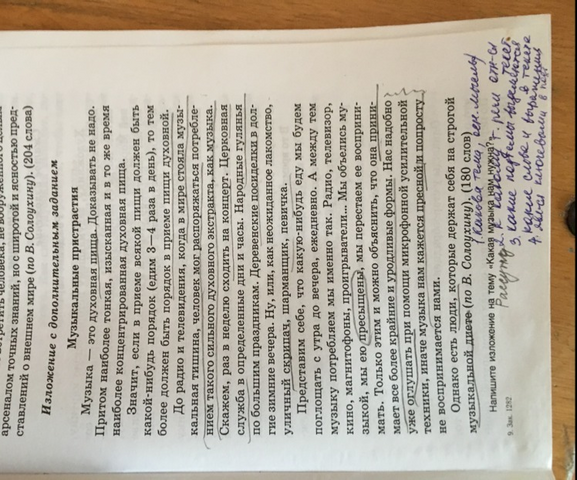 арсеналом точных знаний, но с широтой и ясностью пред-
ставлений о внешнем мире (по В. Солоухину). (204 слова)
Изложение с дополнительным заданием
Музыкальные пристрастия
Музыка — это духовная пища. Доказывать не надо.
Притом наиболее тонкая, изысканная и в то же время
наиболее концентрированная духовная пища.
Значит, если в приеме всякой пищи должен быть
какой-нибудь порядок (едим 3—4 раза в день), то тем
более должен быть порядок в приеме пищи духовной.
До радио и телевидения, когда в мире стояла музы-
кальная тишина, человек мог распоряжаться потребле-
нием такого сильного духовного экстракта, как музыка.
Скажем, раз в неделю сходить на концерт. Церковная
служба в определенные дни и часы. Народные гулянья
по большим праздникам. Деревенские посиделки в дол-
гие зимние вечера. Ну, или, как неожиданное лакомство,
уличный скрипач, шарманщик, певичка.
Представим себе, что какую-нибудь еду мы будем
поглощать с утра до вечера, ежедневно. А между тем
музыку потребляем мы именно так. Радио, телевизор,
кино, магнитофоны, проигрыватели... Мы объелись му-
зыкой, мы ею пресыщены, мы перестаем ее восприни-
мать. Только этим и можно объяснить, что она прини-
мает все более крайние и уродливые формы. Нас надобно
уже оглушать при помощи микрофонной усилительной
техники, иначе музыка нам кажется пресной и попросту
не воспринимается нами.
Однако есть люди, которые держат себя на строгой
музыкальной диете (по В. Солоухину). (180 слов)
Напишите изложение на тему «Какая музыка нам нужна?»
9. Зак. 1282
1. Какова тема, осн. мысль
2.
3. какие
4. какие слова и выражения в тексте